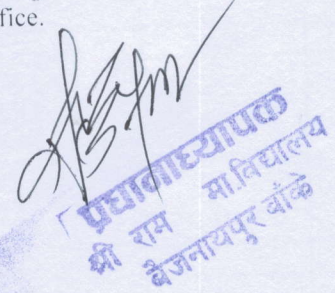 fice.
प्रधानाध्यापक
श्री राम मा.वि‌द्यालय
बैजनाथपुर बाँके